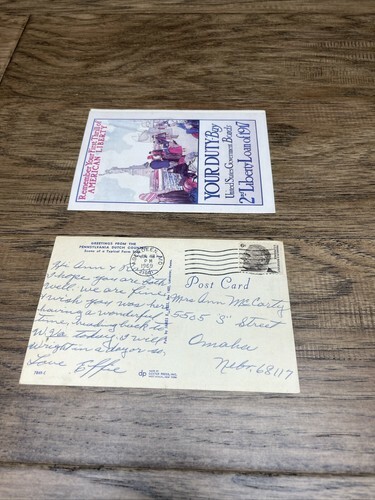 Remember Your First Thrill of
AMERICAN LIBERTY
YOUR DUTY-Buy
United States Government Bonds
2nd Liberty Loan of 1917
GREETINGS FROM THE
PENNSYLVANIA DUTCH COUNTRY
Scene of a Typical Farm
PM
1969
6c
Post Card
Hi Ann &
hope you are both
well. we are fine.
wish you was here
having a wonderful
time. heading back to
today. will
write in a day or so.
Love Effie
Mrs Ann McCarty
5505 "S" Street
Omaha
Nebr. 68117
dp